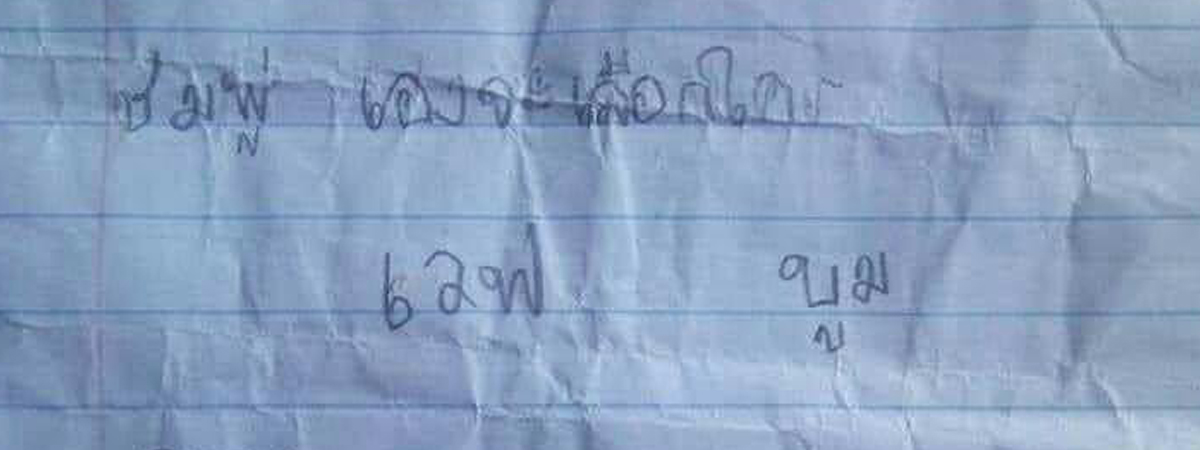 ชมพู่ เองจะเลือกใคร
เวฟ บูม